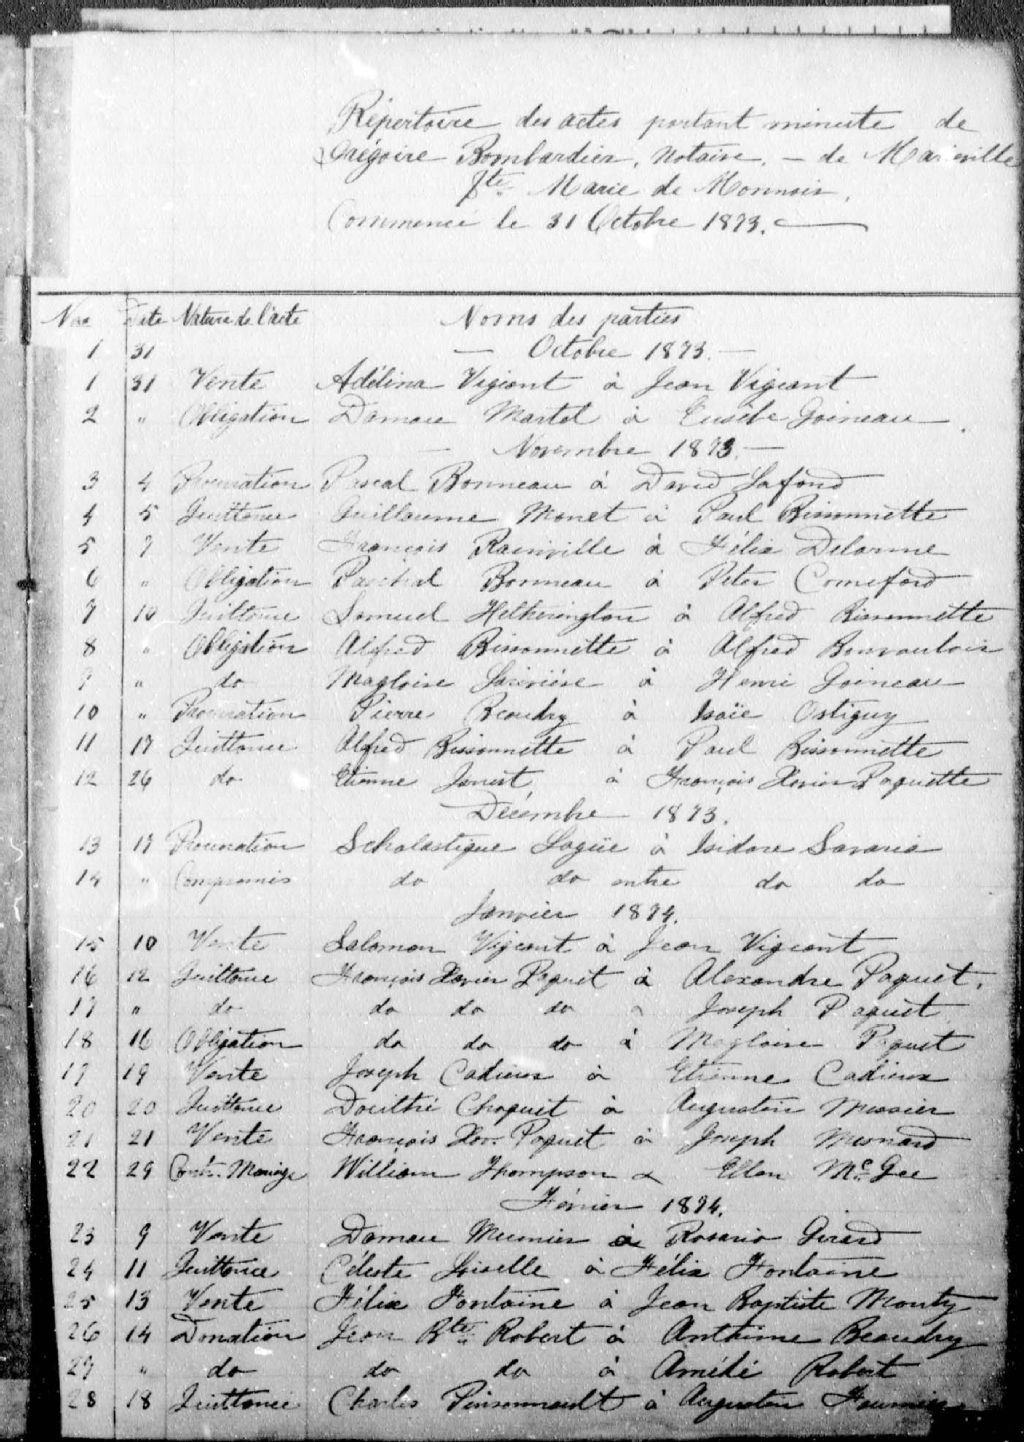 Répertoire des actes portant minute de
Grégoire Bombardier, Notaire, - de Marieville
Ste Marie de Monnoir.
Commencé le 31 Octobre 1893.
Nos Date Nature de l'acte Noms des parties
1 31 — Octobre 1893. —
1 31 Vente Adélina Vigeant à Jean Vigeant
2 " Obligation Damase Martel à Eusèbe Goineau
— Novembre 1893. —
3 4 Procuration Pascal Bonneau à David Lafond
4 5 Quittance Guillaume Monet à Paul Bissonnette
5 7 Vente François Rainville à Félix Delorme
6 " Obligation Paschal Bonneau à Peter Comeford
7 10 Quittance Samuel Hetherington à Alfred Bissonnette
8 " Obligation Alfred Bissonnette à Alfred Bonvouloir
9 " do Magloire Larivière à Henri Goineau
10 " Procuration Pierre Beaudry à Isaïe Ostiguy
11 17 Quittance Alfred Bissonnette à Paul Bissonnette
12 26 do Etienne à François Xavier Paquette
Décembre 1893.
13 17 Procuration Scholastique Lagüe à Isidore Savaria
14 " Compromis do do entre do do
Janvier 1894.
15 10 Vente Salomon Vigeant à Jean Vigeant
16 12 Quittance François Xavier Paquet à Alexandre Paquet.
17 " do do do do à Joseph Paquet
18 16 Obligation do do do à Magloire Paquet
19 19 Vente Joseph Cadieux à Etienne Cadieux
20 20 Quittance Douithé Choquet à Augustin Messier
21 21 Vente François Xav. Paquet à Joseph Meunard
22 29 Contr. Mariage William Thompson & Ellen McGee
Février 1894.
23 9 Vente Damase Meunier à Rosario Girard
24 11 Quittance Céleste Loiselle à Félix Fontaine
25 13 Vente Félix Fontaine à Jean Baptiste Monty
26 14 Donation Jean Bte Robert à Anthime Beaudry
27 " do do do à Amédé Robert
28 18 Quittance Charles Pinsonnault à Augustin Fournier